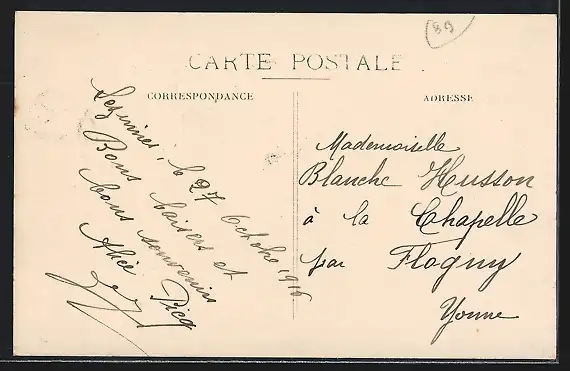 89
CARTE POSTALE
CORRESPONDANCE
ADRESSE
Lezinnes, le 27 Octobre 1916
Bons baisers et
bons souvenirs
Alice Picq
Mademoiselle
Blanche Husson
à la Chapelle
par Flogny
Yonne